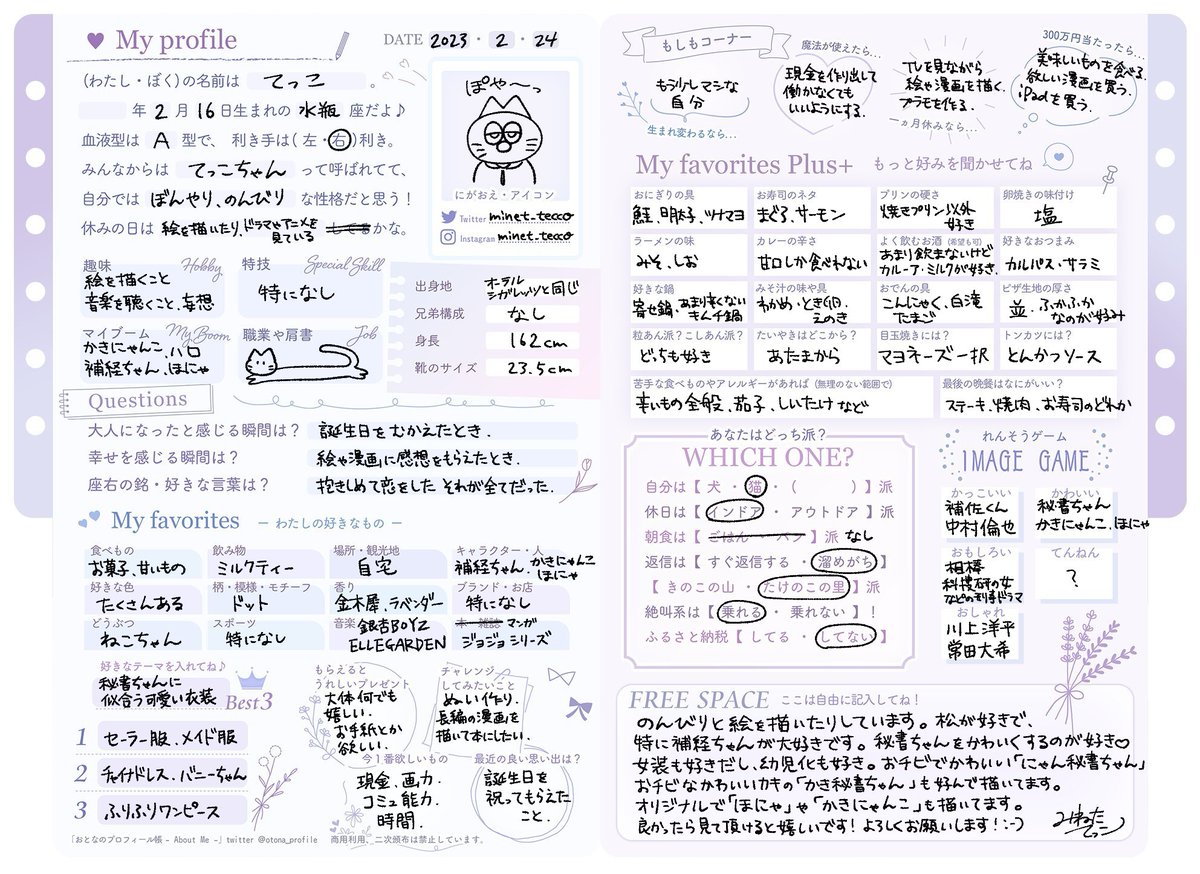 My profile
DATE 2023・2・24
(わたし・ぼく)の名前は てっこ 。
年 2 月 16 日生まれの 水瓶 座だよ♪
血液型は A 型で、利き手は(左・右)利き。
みんなからは てっこちゃん って呼ばれてて、
自分では ぼんやり、のんびり な性格だと思う!
休みの日は 絵を描いたり、ドラマやアニメを
見ている かな。
ぽや〜っ
にがおえ・アイコン
Twitter minet-tecco
Instagram minet-tecco
趣味 Hobby
絵を描くこと
音楽を聴くこと、妄想
特技 Special Skill
特になし
マイブーム My Boom
かきにゃんこ、ハロ
補経ちゃん、ほにゃ
職業や肩書 Job
出身地 オーラル
シガレッツと同じ
兄弟構成 なし
身長 162cm
靴のサイズ 23.5cm
Questions
大人になったと感じる瞬間は? 誕生日をむかえたとき.
幸せを感じる瞬間は? 絵や漫画に感想をもらえたとき.
座右の銘・好きな言葉は? 抱きしめて恋をした それが全てだった.
My favorites ー わたしの好きなもの ー
食べもの
お菓子、甘いもの
飲み物
ミルクティー
場所・観光地
自宅
キャラクター・人
補経ちゃん、かきにゃんこ
ほにゃ
好きな色
たくさんある
柄・模様・モチーフ
ドット
香り
金木犀、ラベンダー
ブランド・お店
特になし
どうぶつ
ねこちゃん
スポーツ
特になし
音楽 銀杏BOYZ
ELLEGARDEN
本・雑誌 マンガ
ジョジョシリーズ
好きなテーマを入れてね♪
秘書ちゃんに
似合う可愛い衣装
Best3
1 セーラー服、メイド服
2 チャイナドレス、バニーちゃん
3 ふりふりワンピース
もらえると
うれしいプレゼント
大体何でも
嬉しい.
お手紙とか
欲しい.
チャレンジ
してみたいこと
ぬい作り.
長編の漫画を
描いて本にしたい.
今1番欲しいもの
現金、画力、
コミュ能力、
時間.
最近の良い思い出は?
誕生日を
祝ってもらえた
こと.
「おとなのプロフィール帳 - About Me -」twitter @otona_profile 商用利用、二次頒布は禁止しています。
もしもコーナー
もう少しマシな
自分
生まれ変わるなら...
魔法が使えたら...
現金を作り出して
働かなくても
いいようにする.
TVを見ながら
絵や漫画を描く.
プラモを作る.
一ヵ月休みなら...
300万円当たったら...
美味しいものを食べる.
欲しい漫画を買う.
iPadを買う.
My favorites Plus+ もっと好みを聞かせてね
おにぎりの具
鮭、明太子、ツナマヨ
お寿司のネタ
まぐろ、サーモン
プリンの硬さ
焼きプリン以外
好き
卵焼きの味付け
塩
ラーメンの味
みそ、しお
カレーの辛さ
甘口しか食べれない
よく飲むお酒(希望も可)
あまり飲まないけど
カルーア・ミルクが好き.
好きなおつまみ
カルパス・サラミ
好きな鍋
寄せ鍋、あまり辛くない
キムチ鍋
みそ汁の味や具
わかめ・とき卵、
えのき
おでんの具
こんにゃく、白滝
たまご
ピザ生地の厚さ
並・ふかふか
なのが好み
粒あん派?こしあん派?
どっちも好き
たいやきはどこから?
あたまから
目玉焼きには?
マヨネーズ一択
トンカツには?
とんかつソース
苦手な食べものやアレルギーがあれば(無理のない範囲で)
辛いもの全般、茄子、しいたけなど
最後の晩餐はなにがいい?
ステーキ、焼肉、お寿司のどれか
あなたはどっち派?
WHICH ONE?
自分は【 犬 ・ 猫 ・ ( ) 】派
休日は【 インドア ・ アウトドア 】派
朝食は【 ごはん ・ パン 】派 なし
返信は【 すぐ返信する ・ 溜めがち 】
【 きのこの山 ・ たけのこの里 】派
絶叫系は【 乗れる ・ 乗れない 】!
ふるさと納税【 してる ・ してない 】
れんそうゲーム
IMAGE GAME
かっこいい
補佐くん
中村倫也
かわいい
秘書ちゃん
かきにゃんこ、ほにゃ
おもしろい
相棒
科捜研の女
などの刑事ドラマ
てんねん
?
おしゃれ
川上洋平
常田大希
FREE SPACE ここは自由に記入してね!
のんびりと絵を描いたりしています。松が好きで、
特に補経ちゃんが大好きです。秘書ちゃんをかわいくするのが好き♡
女装も好きだし、幼児化も好き。おチビでかわいい「にゃん秘書ちゃん」
おチビなかわいいカキの「かき秘書ちゃん」も好んで描いてます。
オリジナルで「ほにゃ」や「かきにゃんこ」も描いてます。
良かったら見て頂けると嬉しいです!よろしくお願いします!:-)
みねった
てっこ